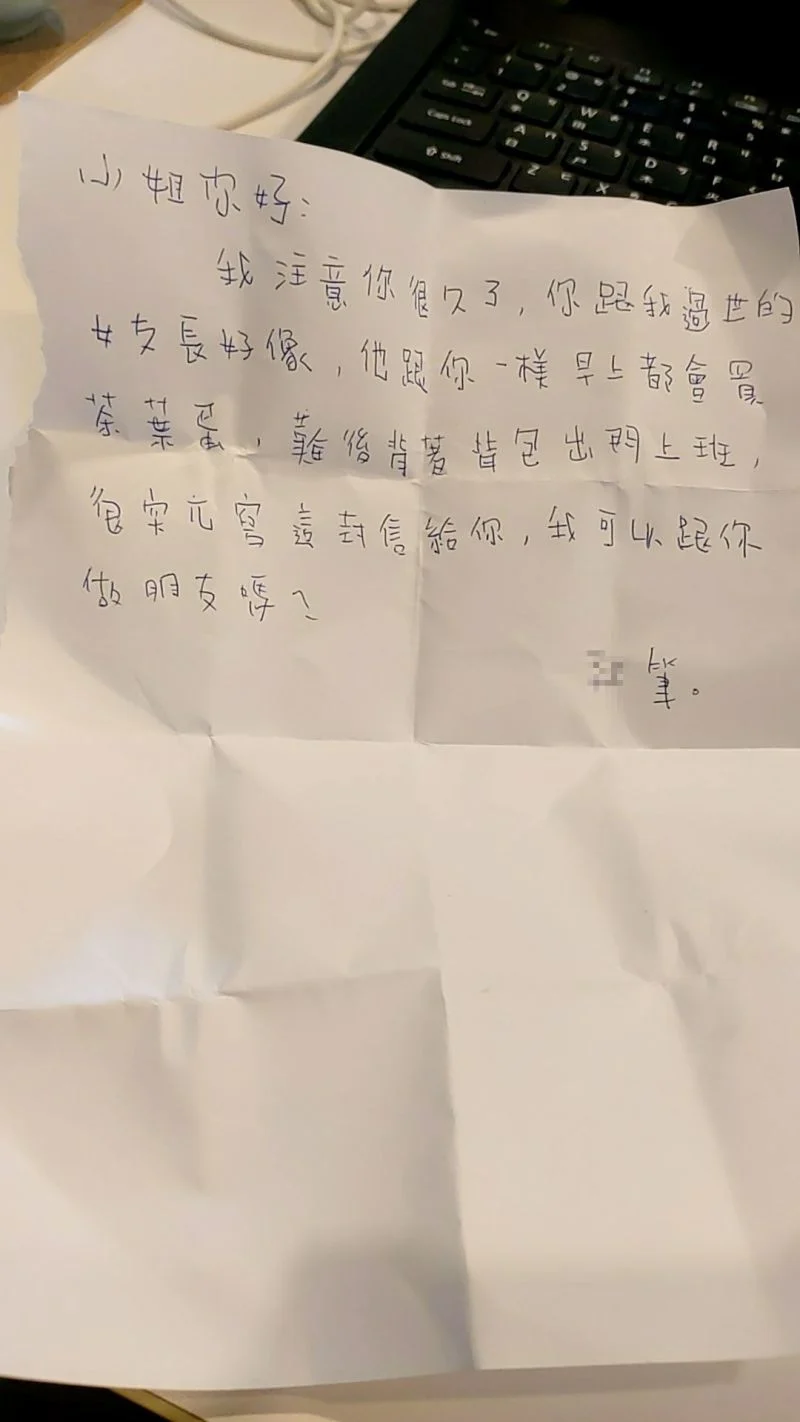 小姐你好：
我注意你很久了，你跟我過世的
女友長好像，他跟你一樣早上都會買
茶葉蛋，難後背著背包出門上班，
很突兀寫這封信給你，我可以跟你
做朋友嗎？
筆。
Caps Lock
Shift
Q W E R T
A S D
Z X